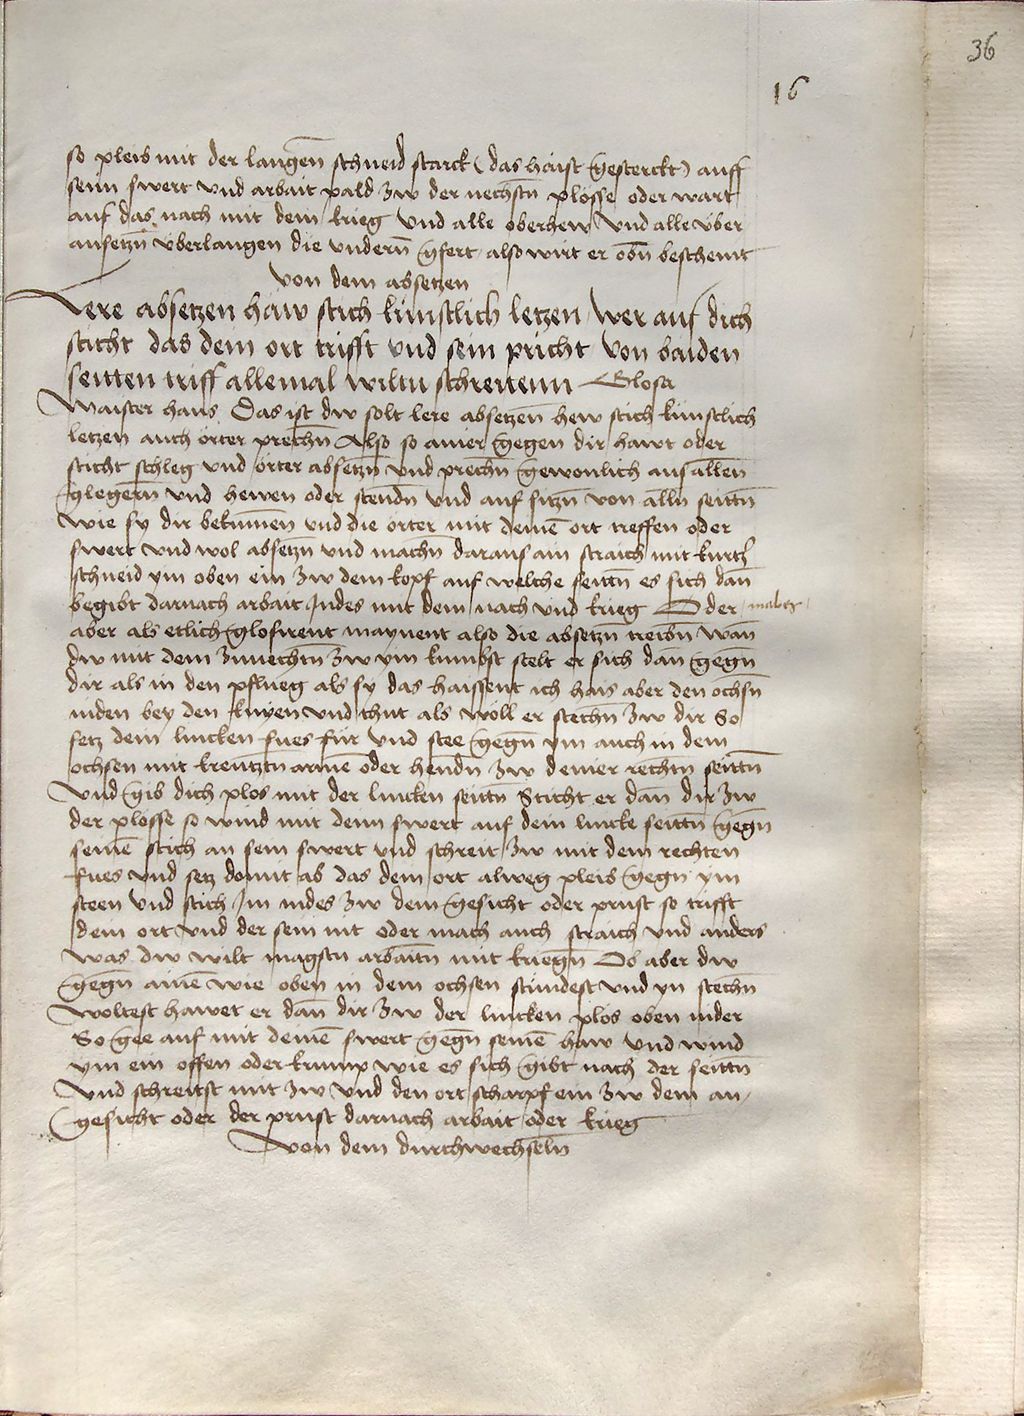 36
16
so pleib mit der langen̄ schneid starck (das haist gesterckt) auff
seim swert vnd arbait pald zw der nechstn̄ plösse oder wart
auf das nach mit dem krieg vnd alle oberhew vnd alle über
ansetzn̄ überlangen die vndern̄ gfert also wirt er obn̄ beschemt
von dem absetzen
Lere absetzen haw stich kunstlich letzen / wer auf dich
sticht das dein ort trifft vnd sein pricht von baiden
seitten triff allemal wiltu schreittenn Glosa
Maister hans Das ist dw solt lere absetzen̄ hew stich künstlich
letzen auch örter prechn̄ Also so ainer gegen dir hawt oder
sticht schleg vnd örter absetzn̄ vnd prechn̄ gewonlich aus allen̄
glegern̄ vnd hewen oder stendn̄ vnd auf sitzn̄ von alln̄ seittn̄
wie sy dir bekumen̄ vnd die örter mit deinē ort treffen oder
swert vnd wol absetzn̄ vnd machn̄ daraus ain straich mit kurtz̄
schneid ym oben ein zw dem kopf auf welche seittn̄ es sich dan̄
begibt darnach arbait Indes mit dem nach vnd krieg Oder
aber als etlich glosirent maynent also die absetzn̄ treibn̄ wan̄
dw mit dem zuuechtn̄ zw ym kumbst stelt er sich dan̄ gegn̄
dir als in den pflueg als sy das haissent ich hais aber den ochsn̄
niden bey den knyen vnd thut als wöll er stechn̄ zw dir So
setz dein lincken fues für vnd stee gegn̄ ym auch in dem
ochsen mit kreutztn̄ armē oder hendn̄ zw deiner rechtn̄ seittn̄
Vnd gib dich plos mit der lincken seittn̄ Sticht er dan̄ dir zw
der plösse so wind mit deim swert auf dein lincke seittn̄ gegn̄
seinē stich an sein swert vnd schreit zw mit dem rechten
fues vnd setz domit ab das dein ort alweg pleib gegn̄ ym
steen vnd stich Im indes zw dem gesicht oder prust so trifft
dein ort vnd der sein nit oder mach auch straich vnd anders
was dw wilt magstu arbaittn̄ mit kriegn̄ Ob aber dw
gegn̄ ainē wie oben in dem ochsen stündest vnd yn stechn̄
woltest hawet er dan̄ dir zw der lincken plös oben nider
So gee auf mit deinē swert gegn̄ seinē haw vnd wind
ym ein offen oder krump wie es sich gibt nach der seittn̄
Vnd schreitst mit zw vnd den ort scharpf ein zw dem an/
gesicht oder der prust darnach arbait oder krieg
Von dem durchwechseln̄